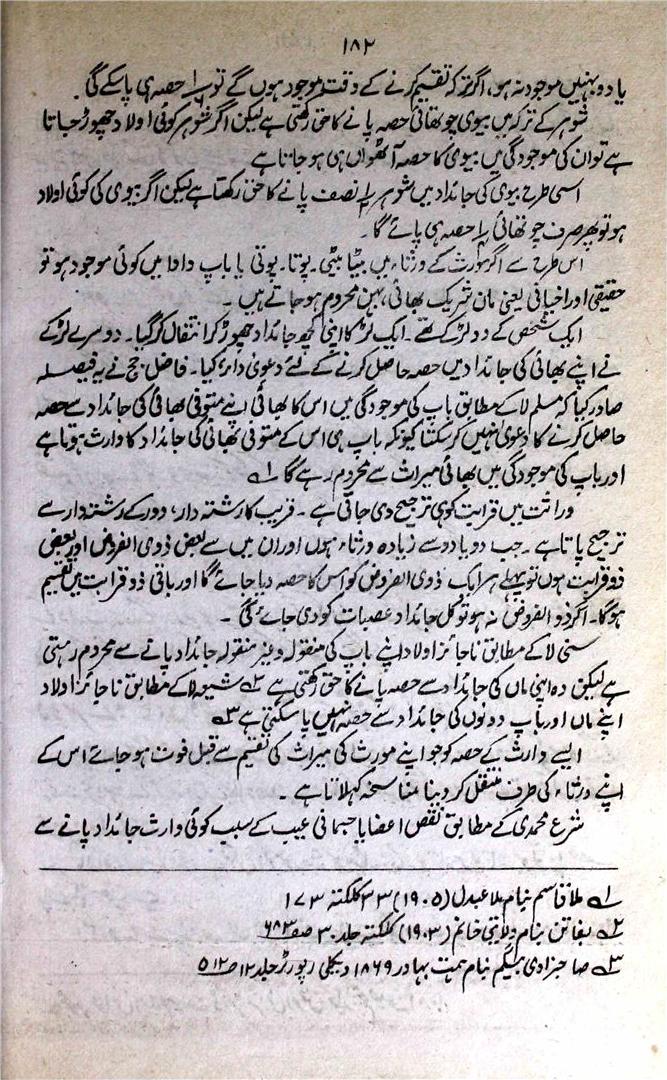 ۱۸۲
یا دو بہنیں موجود نہ ہو، اگر ترکہ تقسیم کرنے کے وقت موجود ہوں گے تو ۱/۶ حصہ ہی پا سکے گی
شوہر کے ترکہ میں بیوی چوتھائی حصہ پانے کا حق رکھتی ہے لیکن اگر شوہر کوئی اولاد چھوڑ جاتا
ہے تو ان کی موجودگی میں بیوی کا حصہ آٹھواں ہی ہو جاتا ہے
اسی طرح بیوی کی جائداد میں شوہر ۱/۲ نصف پانے کا حق رکھتا ہے لیکن اگر بیوی کی کوئی اولاد
ہو تو پھر صرف چوتھائی ۱/۴ حصہ ہی پائے گا۔
اس طرح سے اگر مورث کے ورثاء میں بیٹا بیٹی۔ پوتا۔ پوتی یا باپ دادا میں کوئی موجود ہو تو
حقیقی اور اخیافی یعنی ماں شریک بھائی، بہن محروم ہو جاتے ہیں۔
ایک شخص کے دو لڑکے تھے۔ ایک لڑکا اپنی کچھ جائداد چھوڑ کر انتقال کر گیا۔ دوسرے لڑکے
نے اپنے بھائی کی جائداد میں حصہ حاصل کرنے کے لئے دعویٰ دائر کیا۔ فاضل جج نے یہ فیصلہ
صادر کیا کہ مسلم لا کے مطابق باپ کی موجودگی میں اس کا بھائی اپنے متوفی بھائی کی جائداد سے حصہ
حاصل کرنے کا دعویٰ نہیں کر سکتا کیونکہ باپ ہی اس کے متوفی بھائی کی جائداد کا وارث ہوتا ہے
اور باپ کی موجودگی میں بھائی میراث سے محروم رہے گا ؂۱
وراثت میں قرابت کو ہی ترجیح دی جاتی ہے۔ قریب کا رشتہ دار، دور کے رشتہ دار سے
ترجیح پاتا ہے۔ جب دو یا دو سے زیادہ ورثاء ہوں اور ان میں سے بعض ذوی الفروض اور بعض
ذو قرابت ہوں تو پہلے ہر ایک ذوی الفروض کو اس کا حصہ دیا جائے گا اور باقی ذو قرابت میں تقسیم
ہوگا۔ اگر ذو الفروض نہ ہو تو کل جائداد عصبات کو دی جائے گی۔
سنی لا کے مطابق ناجائز اولاد اپنے باپ کی منقولہ و غیر منقولہ جائداد پانے سے محروم رہتی
ہے لیکن وہ اپنی ماں کی جائداد سے حصہ پانے کا حق رکھتی ہے ؂۲ شیعہ لا کے مطابق ناجائز اولاد
اپنے ماں اور باپ دونوں کی جائداد سے حصہ نہیں پا سکتی ہے ؂۳
ایسے وارث کے حصہ کو جو اپنے مورث کی میراث کی تقسیم سے قبل فوت ہو جائے اس کے
اپنے ورثاء کی طرف منتقل کر دینا مناسخہ کہلاتا ہے۔
شرع محمدی کے مطابق نقص اعضا یا جسمانی عیب کے سبب کوئی وارث جائداد پانے سے
؂۱ ملا قاسم بنام ملا عبدل (۱۹۰۵) ۳۳ کلکتہ ۱۷۳
؂۲ بفاتن بنام ولایتی خانم (۱۹۰۳) کلکتہ جلد ۳۰ صفہ ۶۸۳
؂۳ صاحبزادی بیگم بنام ہمت بہادر ۱۸۶۹ ویکلی رپورٹر جلد ۱۲ ص ۵۱۲